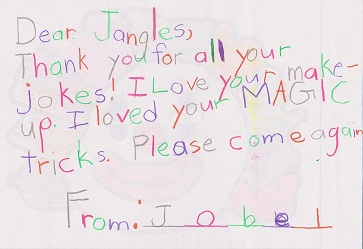 Dear Jangles,
Thank you for all your
jokes! I Love your make-
up. I loved your MAGIC
tricks. Please come again.
From: Jobel